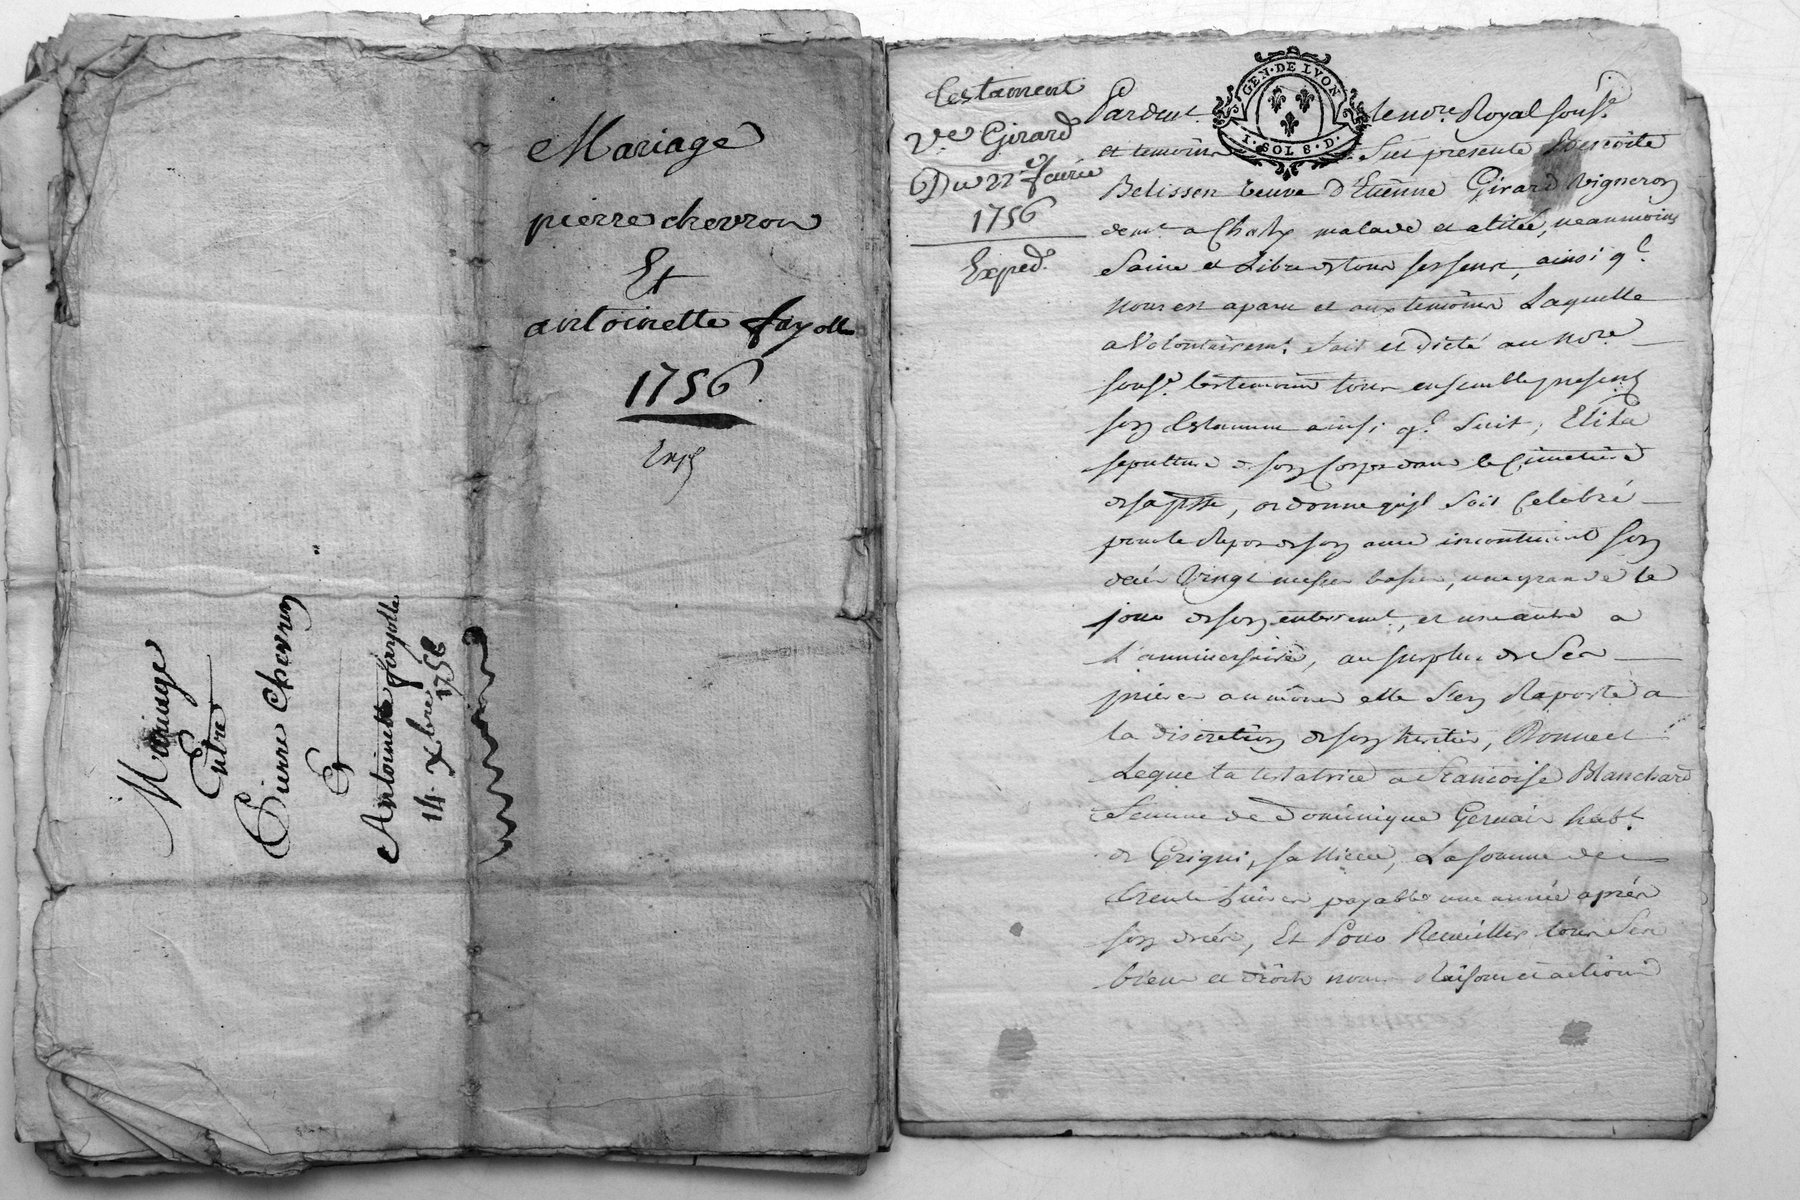 Mariage
pierre chevron
Et
antoinette fayolle
1756
Exp
Mariage
Entre
Pierre Chevron
&
Antoinette fayolle
14. xbre 1756
testament
Ve. Girard
Du 22e fevrier
1756
Exped.
GEN. DE LYON
1. SOL 8. D.
Pardevt. le nore. Royal sousé.
et temoins Fut presente
Belisson veuve d'Etienne Girard Vigneron
demt. a malade et alitée, neanmoins
Saine et Libre de tous ses sens, ainsi ql.
nous est aparu et aux temoins Laquelle
a Volontairemt. fait et dicté au Nore.
sousé. les temoins tous ensemble presens
son testament ainsi ql. Suit, Elit la
sepulture de son Corps dans le Cimetiere
de sa psse, ordonne qu'il soit Celebré
pour le Repos de son ame incontinent son
decés Vingt messes basses, une grande le
jour de son enterremt., et une autre a
l'anniversaire, au surplus de Ses
prieres aumônes elle s'en Raporte a
la discretion de son heritier, Donne et
Legue la testatrice a Francoise Blanchard
femme de Dominique Gervais habt.
de Grigni, sa Niece, La somme de
trente livres payable une année après
son decés, Et Pour Recueillir tous Ses
biens et droits noms Raisons et actions